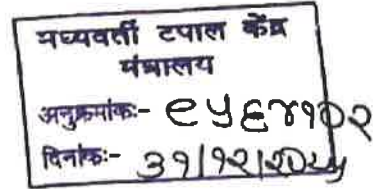 मध्यवर्ती टपाल केंद्र
मंत्रालय
अनुक्रमांक:- ९५६४१०२
दिनांक:- ३१/१२/२०२५